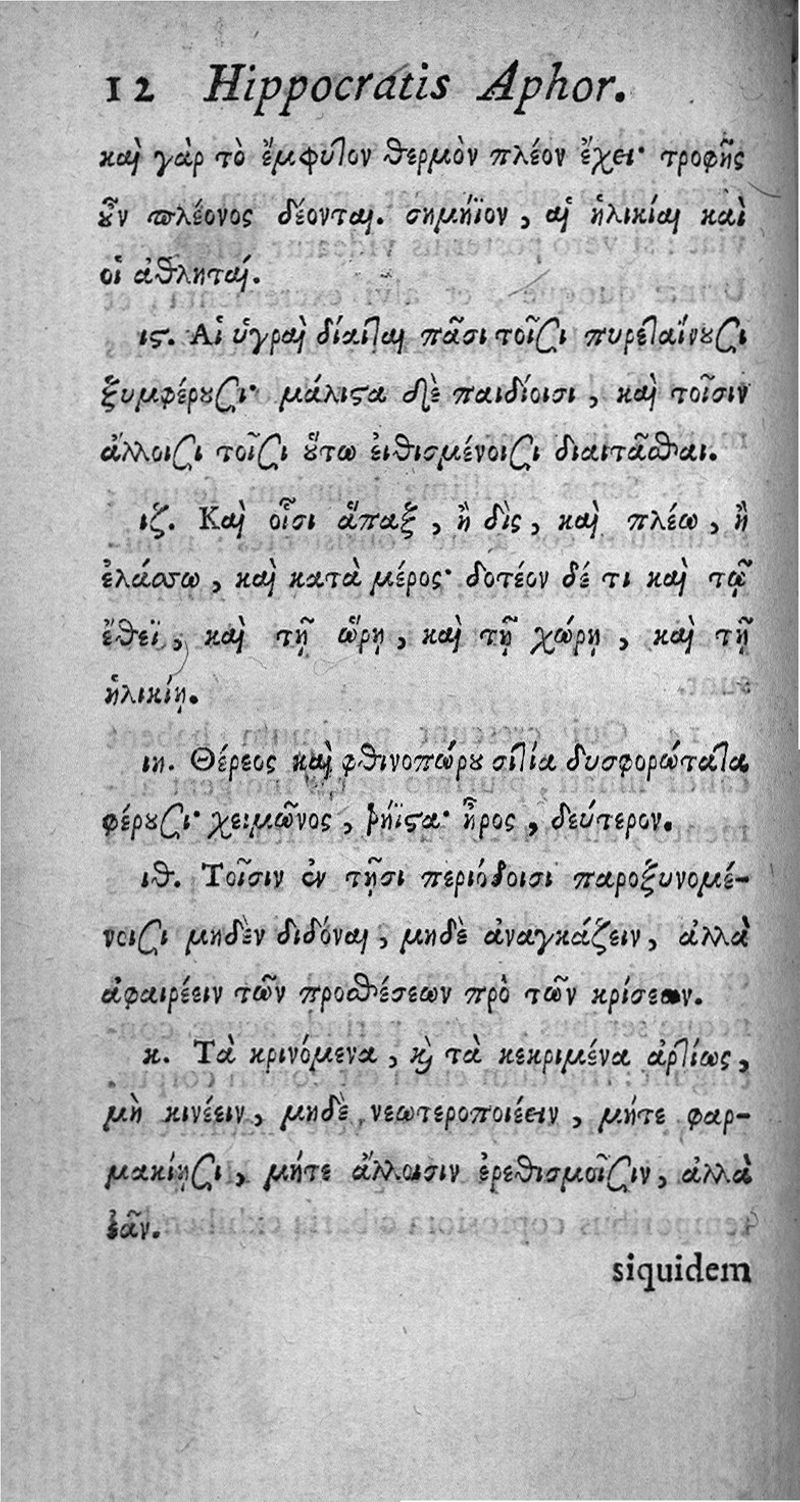 12 Hippocratis Aphor.
καὶ γὰρ τὸ ἔμφυτον θερμὸν πλέον ἔχει· τροφῆς
ȣ̓͂ν πλέονος δέονται. σημήϊον, αἱ ἡλικίαι καὶ
οἱ ἀθληταί.
ιϛ. Αἱ ὑγραὶ δίαιται πᾶσι τοῖσι πυρεταίνȣσι
ξυμφέρȣσι· μάλιϛα δὲ παιδίοισι, καὶ τοῖσιν
ἄλλοισι τοῖσι ȣ̔́τω εἰθισμένοισι διαιτᾶσθαι.
ιζ. Καὶ οἷσι ἅπαξ, ἢ δὶς, καὶ πλέω, ἢ
ἐλάσσω, καὶ κατὰ μέρος· δοτέον δέ τι καὶ τῷ
ἔθεϊ, καὶ τῇ ὥρῃ, καὶ τῇ χώρῃ, καὶ τῇ
ἡλικίῃ.
ιη. Θέρεος καὶ φθινοπώρȣ σιτία δυσφορώτατα
φέρȣσι· χειμῶνος, ῥήϊϛα· ἦρος, δεύτερον.
ιθ. Τοῖσιν ἐν τῇσι περιόδοισι παροξυνομέ-
νοισι μηδὲν διδόναι, μηδὲ ἀναγκάζειν, ἀλλὰ
ἀφαιρέειν τῶν προσθέσεων πρὸ τῶν κρίσεων.
κ. Τὰ κρινόμενα, ϗ τὰ κεκριμένα ἀρτίως,
μὴ κινέειν, μηδὲ νεωτεροποιέειν, μήτε φαρ-
μακίῃσι, μήτε ἄλλοισιν ἐρεθισμοῖσιν, ἀλλὰ
ἐᾶν.
siquidem